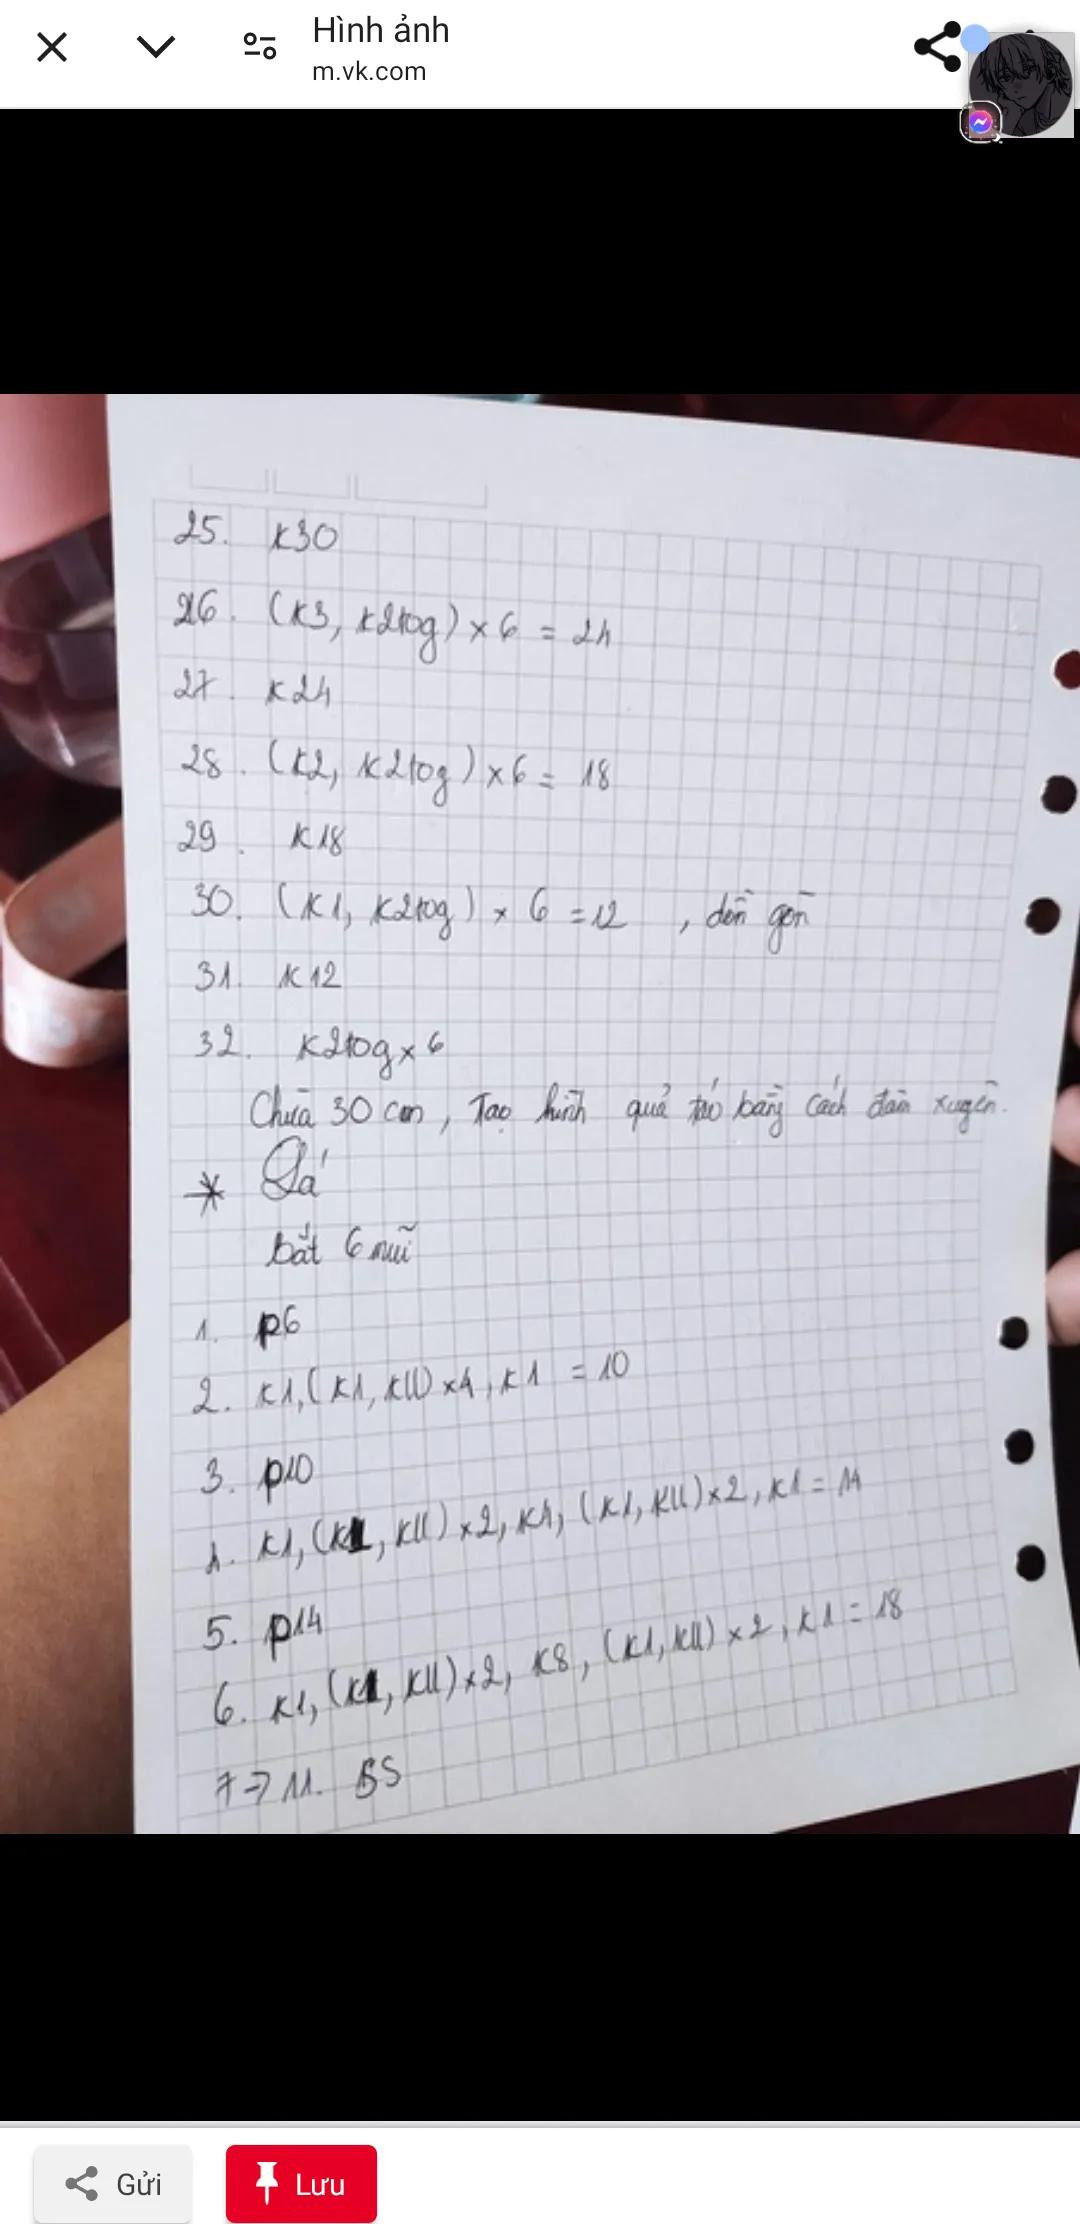 Hình ảnh
m.vk.com
25. K30
26. (K3, K2tog) × 6 = 24
27. K24
28. (K2, K2tog) × 6 = 18
29. K18
30. (K1, K2tog) × 6 = 12, dồn gòn
31. K12
32. K2tog × 6
Chừa 30 cm, Tạo hình quả táo bằng cách đan xuyên.
* Lá
bắt 6 mũi
1. p6
2. K1, (K1, Kll) × 4, K1 = 10
3. p10
4. K1, (K1, Kll) × 2, K4, (K1, Kll) × 2, K1 = 14
5. p14
6. K1, (K1, Kll) × 2, K8, (K1, Kll) × 2, K1 = 18
7 → 11. BS
Gửi
Lưu